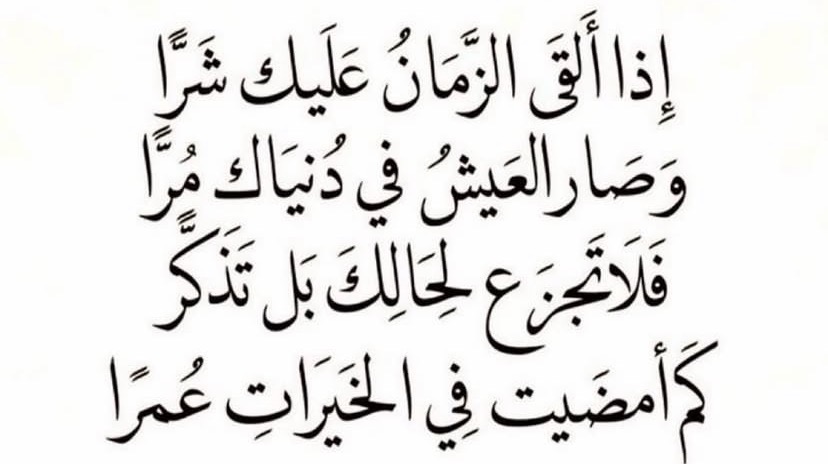 إِذا أَلقَى الزَّمَانُ عَلَيك شَرًّا
وَصَار العَيشُ في دُنيَاك مُرًّا
فَلَا تَجزَع لِحَالِكَ بَل تَذَكَّر
كَم أمضَيت فِي الخَيَرَاتِ عُمرًا